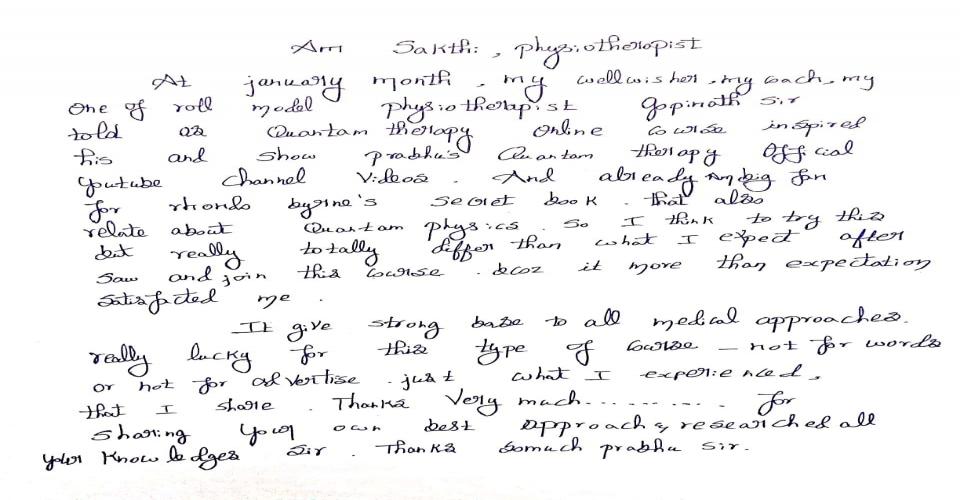 Am Sakthi, physiotherapist
At january month, my wellwisher, my coach, my
one of roll model physiotherapist Gopinath sir
told as Quantam therapy online course inspired
his and show prabhu's Quantam therapy Official
Youtube Channel Videos. And already Am big fan
for rhondo byrne's secret book. that also
relate about Quantam physics. So I think to try this
but really totally differ than what I expect after
saw and join this course. becoz it more than expectation
satisfacted me.
It give strong base to all medical approaches.
really lucky for this type of course - not for words
or not for advertise. just what I experienced,
that I share. Thanks Very much.......... for
sharing your own best approach & researched all
your knowledges sir. Thanks somuch prabhu sir.